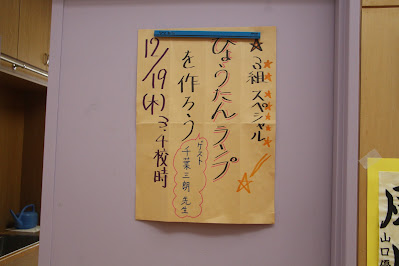 3組 スペシャル
ひょうたんランプ
を作ろう
ゲスト
千葉三朗 先生
12/19(木) 3.4校時
山口優